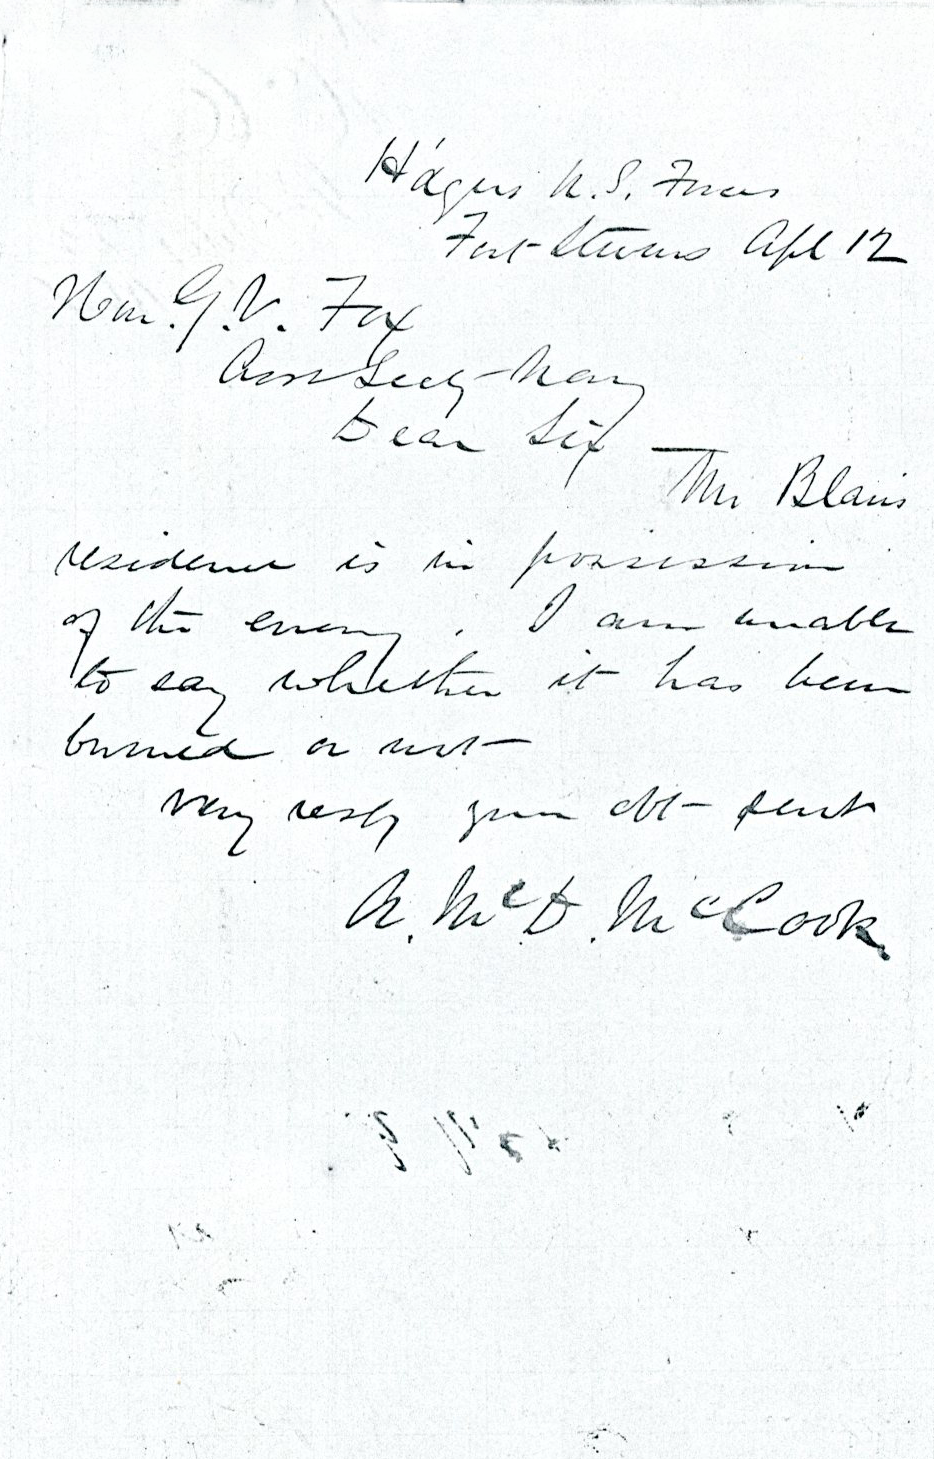 Hdqrs U.S. Forces
Fort Stevens Apl 12
Hon. G. V. Fox
Asst Secty Navy
Dear Sir
— Mr Blairs
residence is in possession
of the enemy. I am unable
to say whether it has been
burned or not—
Very resply your obt— servt
A. McD. McCook